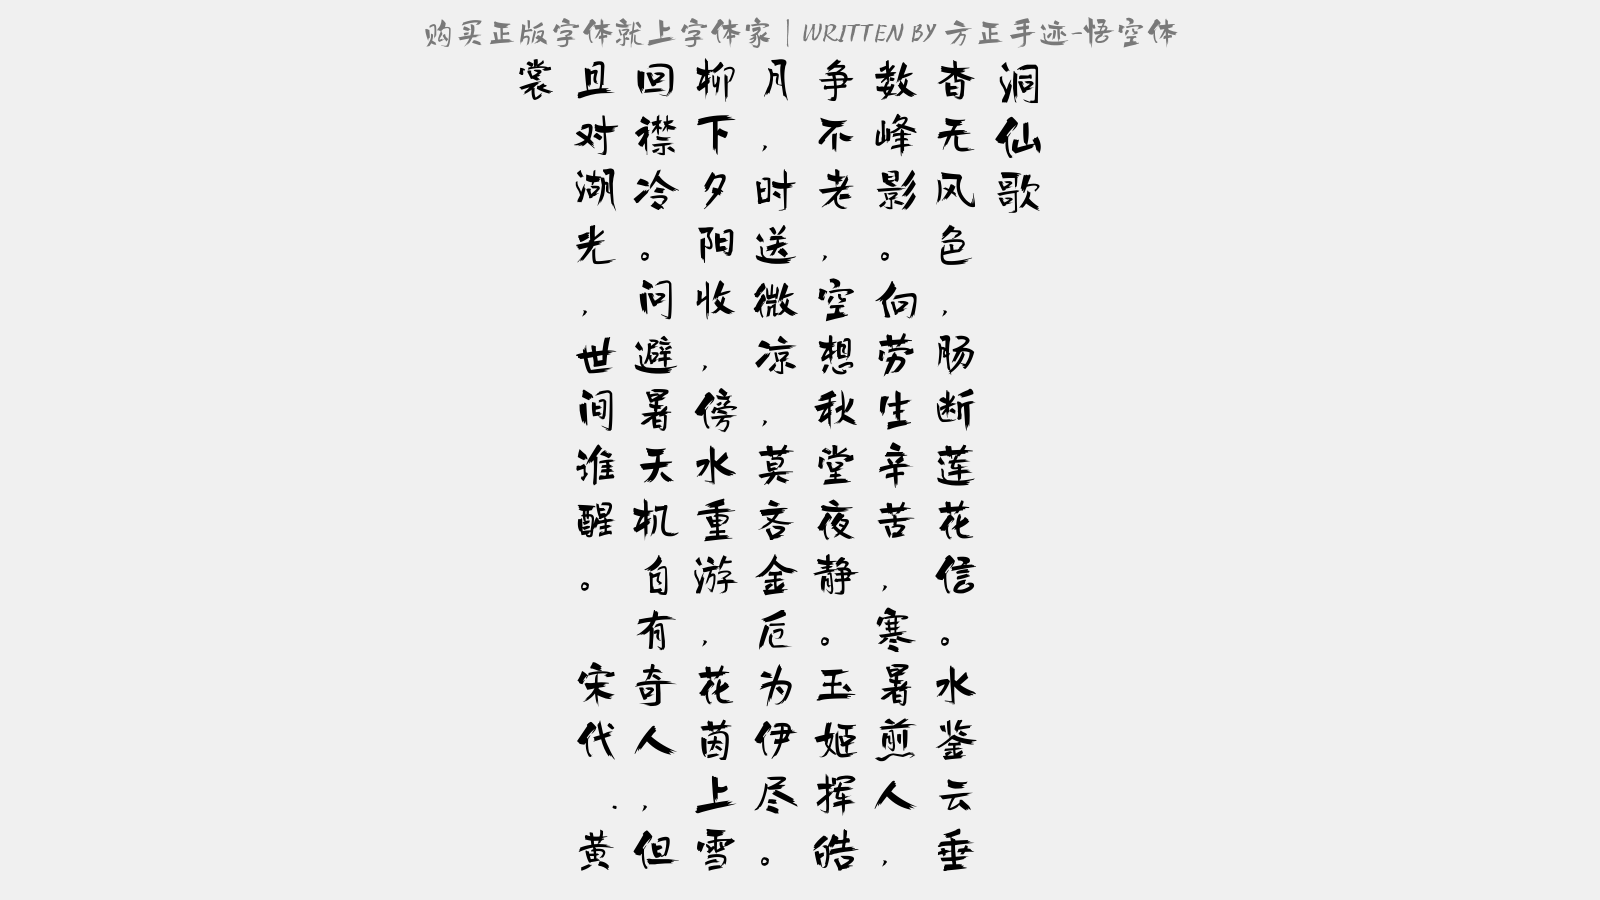 购买正版字体就上字体家｜WRITTEN BY 方正手迹-悟空体
洞仙歌
杳无风色，肠断莲花信。水鉴云垂
数峰影。向劳生辛苦，寒暑煎人，
争不老，空想秋堂夜静。玉姬挥皓
月，时送微凉，莫吝金卮为伊尽。
柳下夕阳收，傍水重游，花茵上雪
回襟冷。问避暑天机自有奇人，但
且对湖光，世间谁醒。 宋代．黄
裳